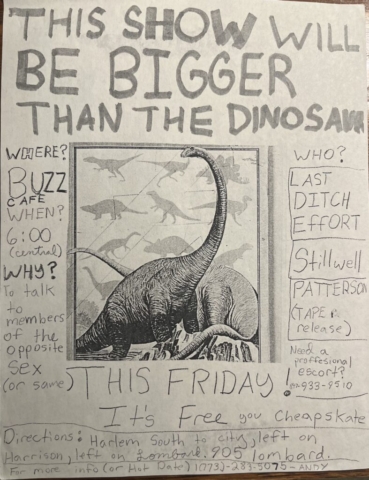 THIS SHOW WILL
BE BIGGER
THAN THE DINOSAUR
WHERE?
BUZZ
CAFE
WHEN?
6:00
(central)
WHY?
To talk
to
members
of the
opposite
sex
(or same)
WHO?
LAST
DITCH
EFFORT
Stillwell
PATTERSON
(TAPE
release)
Need a
proffesional
escort?
933-9510
THIS FRIDAY!
It's Free you Cheapskate
Directions: Harlem South to city, left on
Harrison, left on Lombard. 905 lombard.
For more info (or Hot Date) 1(773)-283-5075-ANDY